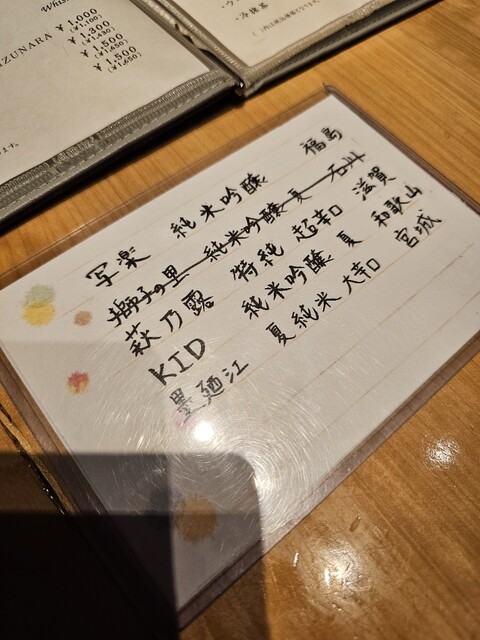 Whis
ZUNARA
¥1,000
(¥1,100)
¥1,300
(¥1,430)
¥1,500
(¥1,650)
¥1,500
(¥1,650)
ます。
・冷抹茶
写楽 純米吟醸 福島
獅子の里 純米吟醸 夏 石川
萩乃露 特純 超辛口 滋賀
KID 純米吟醸 夏 和歌山
墨廼江 夏純米 大辛口 宮城